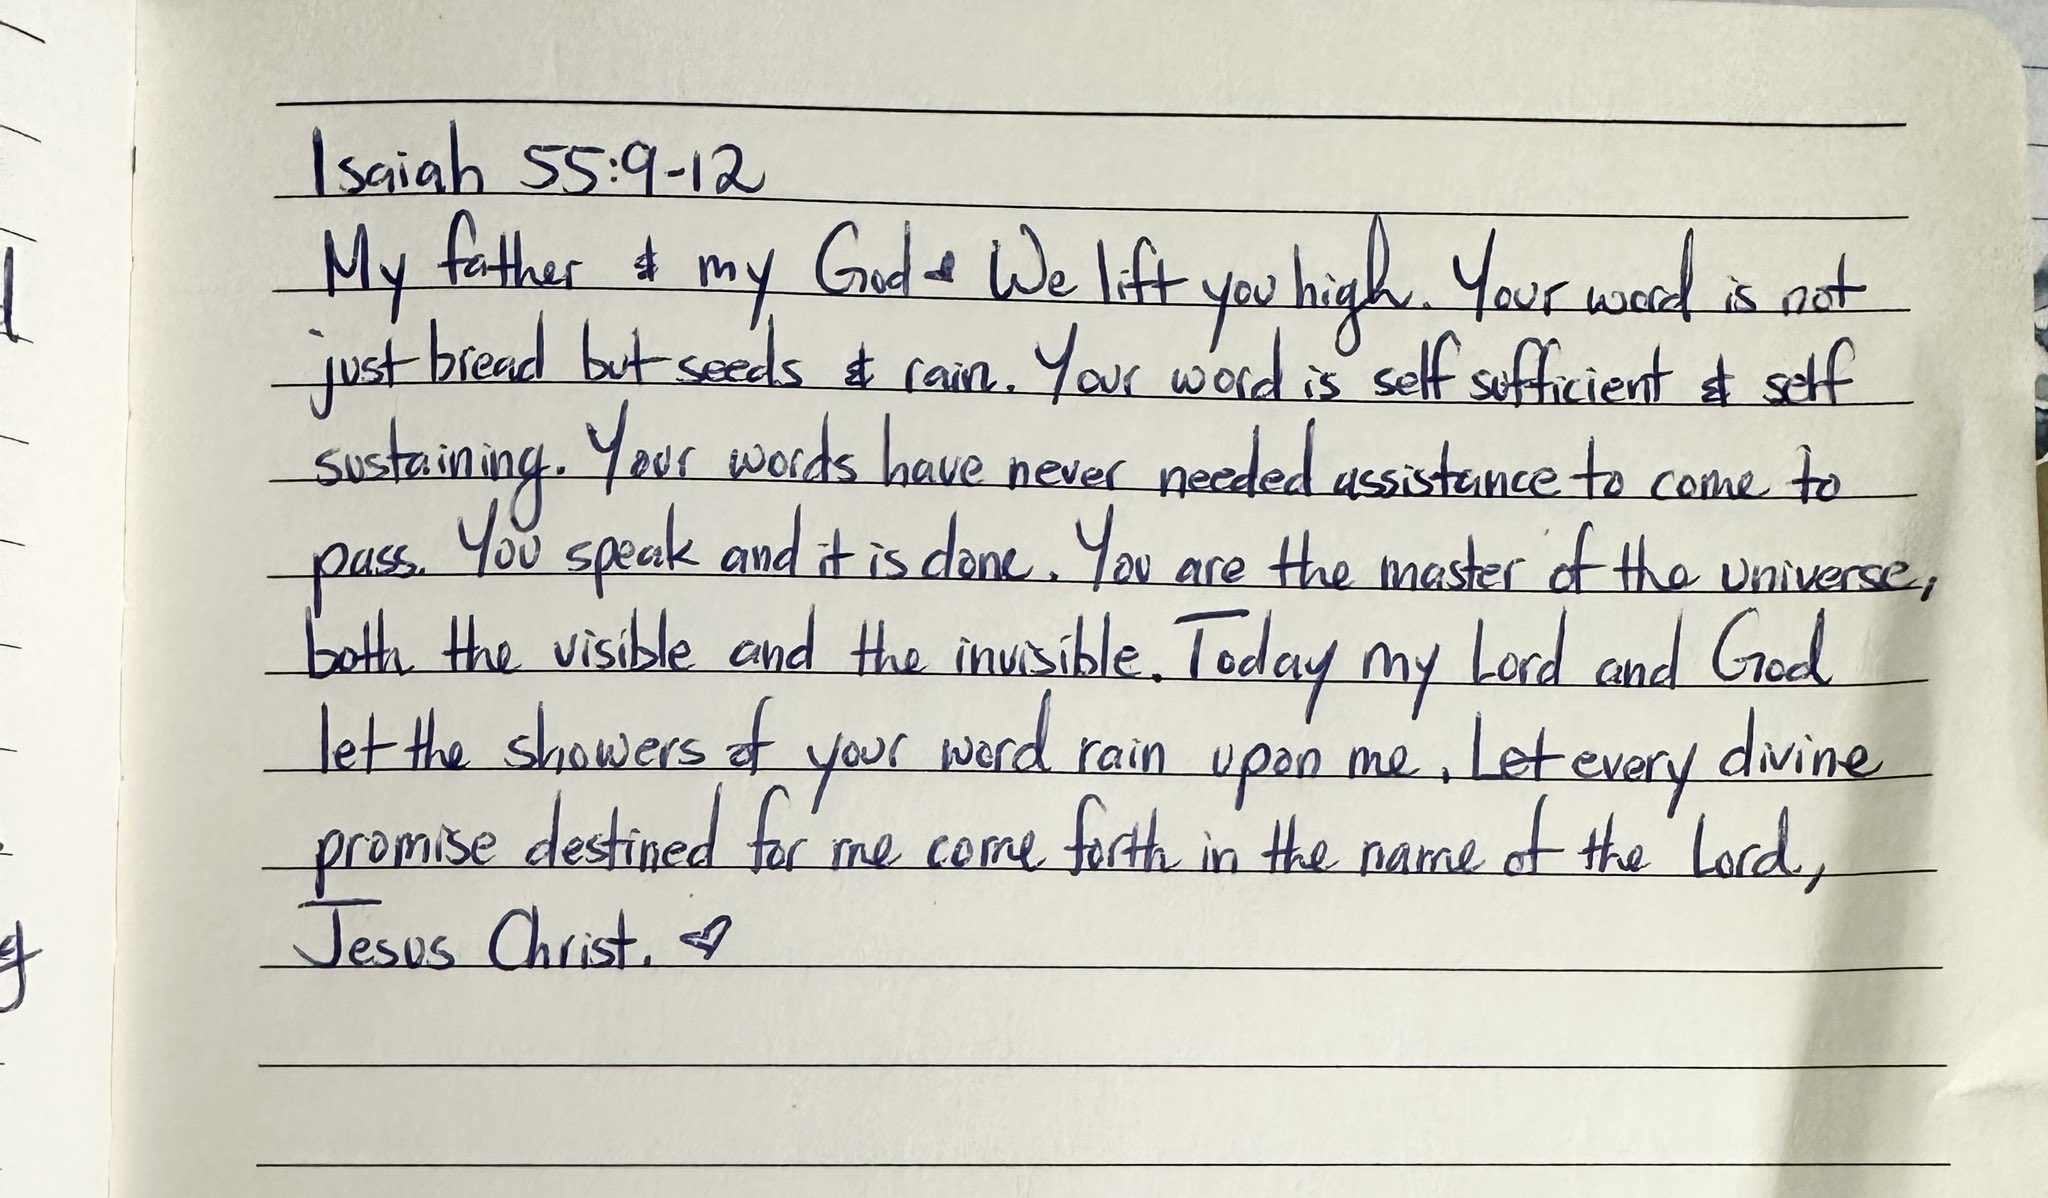 Isaiah 55:9-12
My father & my God. We lift you high. Your word is not
just bread but seeds & rain. Your word is self sufficient & self
sustaining. Your words have never needed assistance to come to
pass. You speak and it is done. You are the master of the universe,
both the visible and the invisible. Today my Lord and God
let the showers of your word rain upon me. Let every divine
promise destined for me come forth in the name of the Lord,
Jesus Christ. ♡